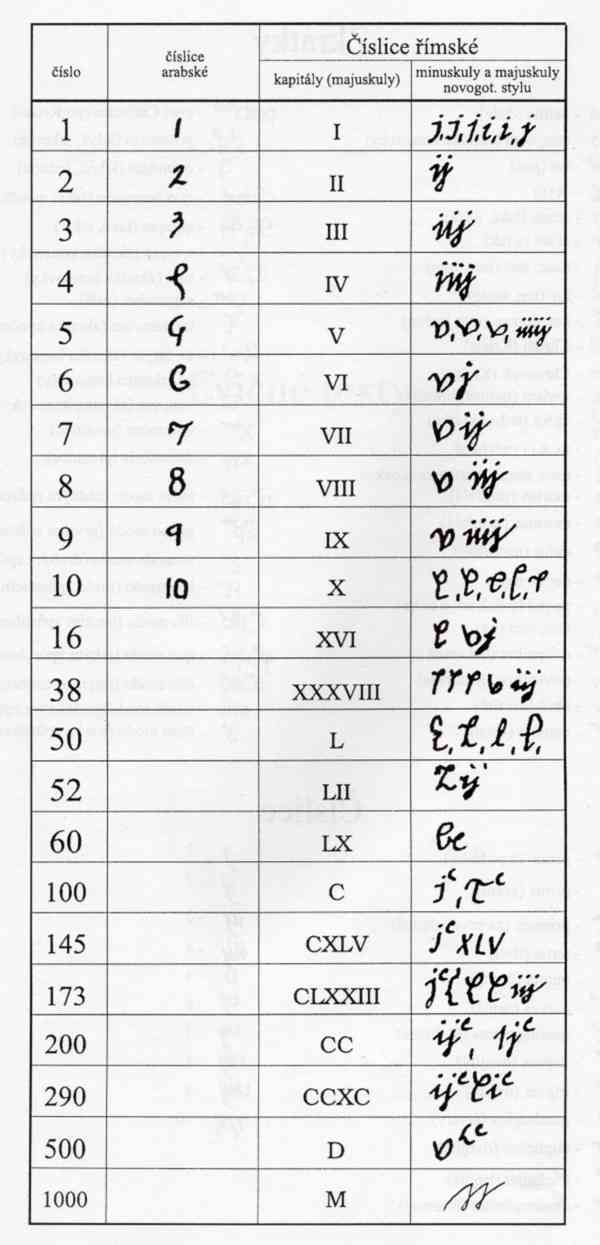 číslo číslice arabské Číslice římské
kapitály (majuskuly) minuskuly a majuskuly novogot. stylu
1 1 I j, J, j, i, i, j
2 2 II ij
3 3 III iij
4 4 IV iiij
5 5 V v, v, v, iiiij
6 6 VI vj
7 7 VII vij
8 8 VIII v iij
9 9 IX v iiij
10 10 X
16 XVI vj
38 XXXVIII v iij
50 L
52 LII L ij
60 LX
100 C jc
145 CXLV jc XLV
173 CLXXIII jc iij
200 CC ijc, ijc
290 CCXC ijc
500 D vc
1000 M